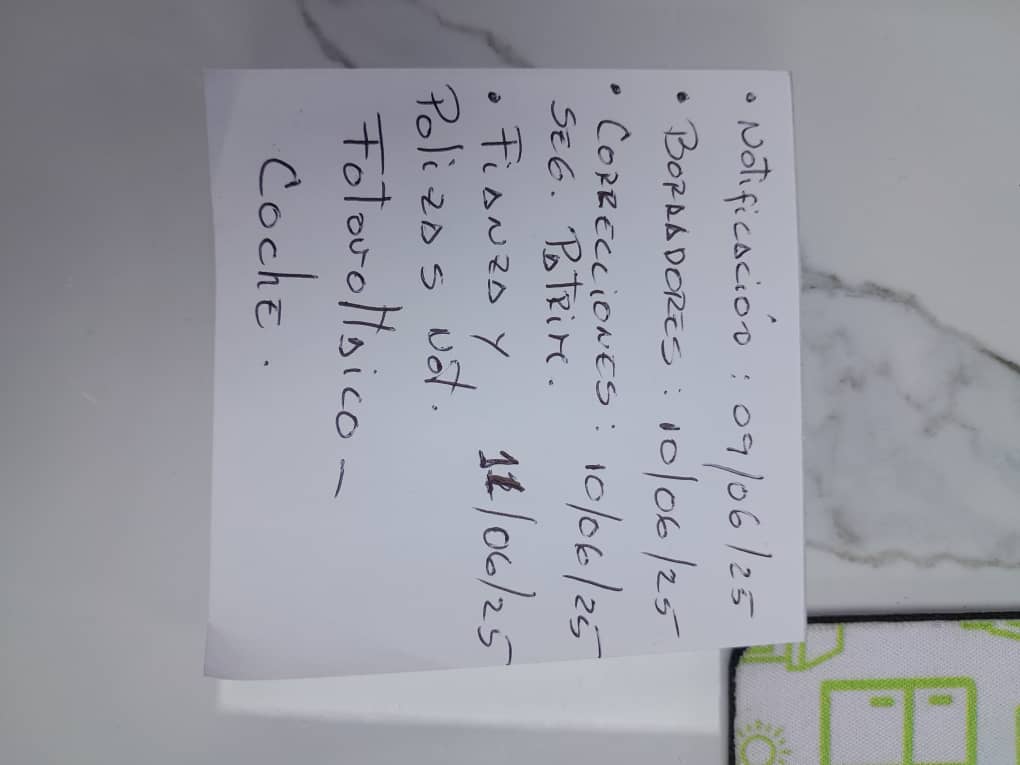 • Notificación : 09/06/25
• BORRADORES : 10/06/25
• CORRECCIONES : 10/06/25
SEG. PATRIM.
• FIANZA Y 11/06/25
Polizas Not.
Fotovoltaico -
COCHE.